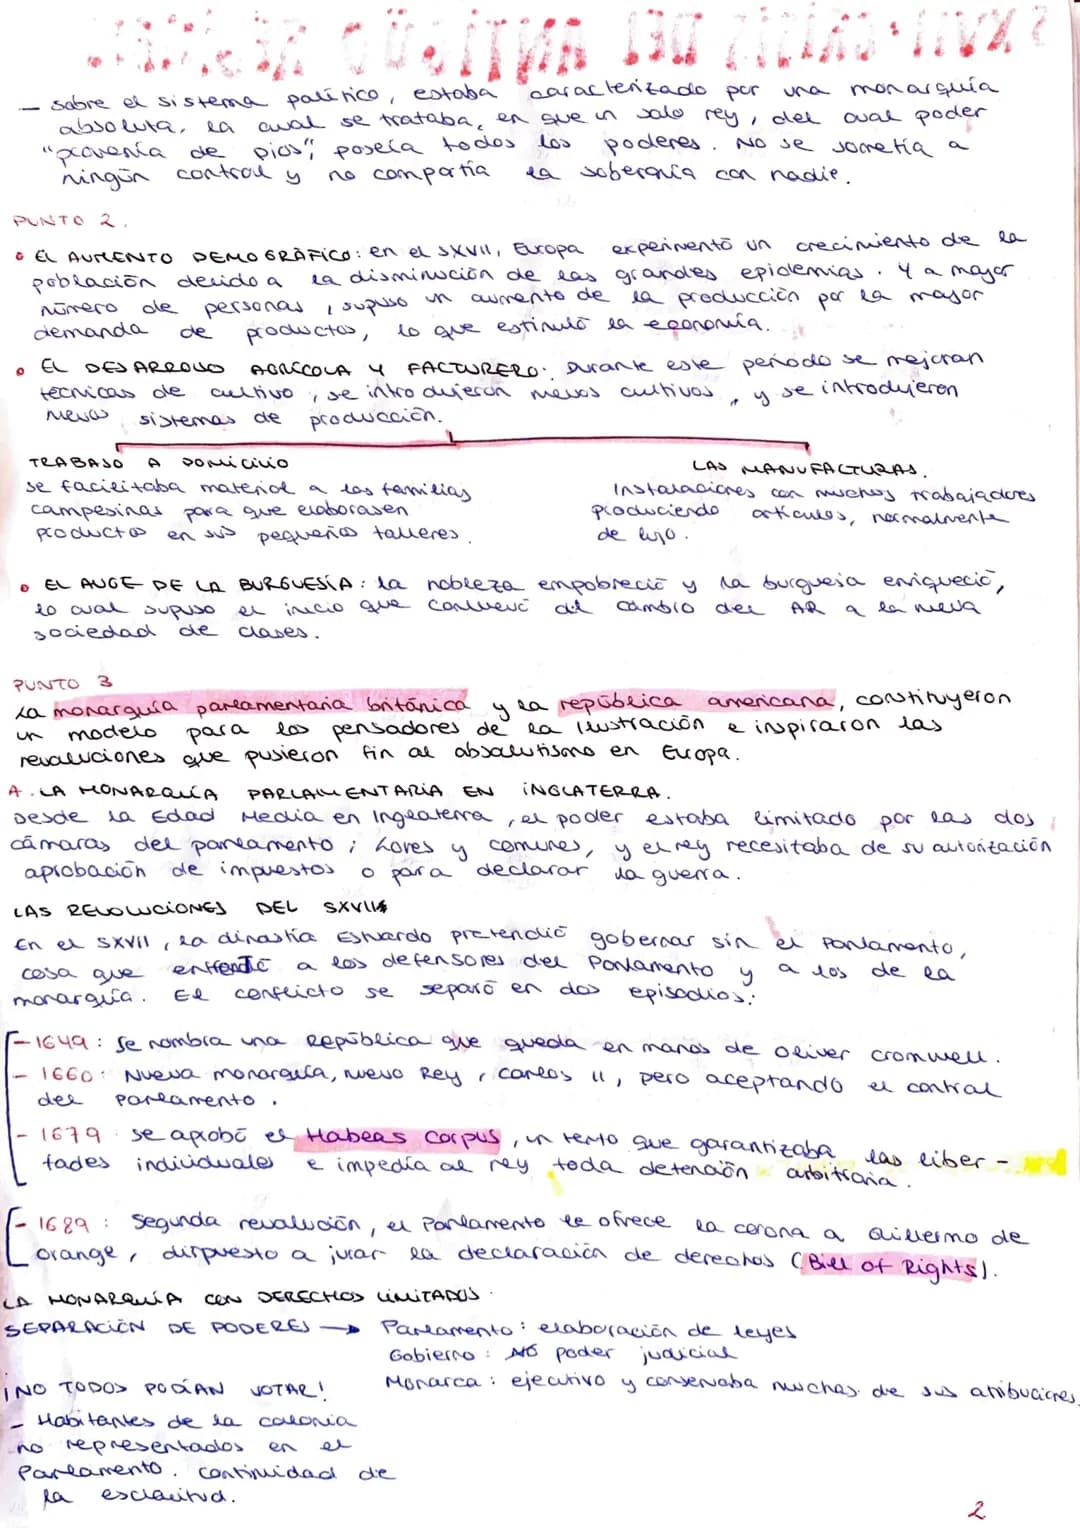 - sobre el sistema político, estaba caracterizado por una monarquía
absoluta, la cual se trataba, en que un solo rey, del cual poder
"provenía de Dios", poseía todos los poderes. No se sometía a
ningún control y no compartía la soberanía con nadie.
PUNTO 2.
• EL AUMENTO DEMOGRÁFICO: en el SXVII, Europa experimentó un crecimiento de la
población debido a la disminución de las grandes epidemias. Y a mayor
número de personas, supuso un aumento de la producción por la mayor
demanda de productos, lo que estimuló la economía.
• EL DESARROLLO AGRÍCOLA Y FACTURERO: Durante este período se mejoran
técnicas de cultivo, se introdujeron nuevos cultivos, y se introdujeron
nuevos sistemas de producción.
TRABAJO A DOMICILIO
se facilitaba material a las familias
campesinas para que elaborasen
productos en sus pequeños talleres.
LAS MANUFACTURAS.
Instalaciones con muchos trabajadores
produciendo artículos, normalmente
de lujo.
• EL AUGE DE LA BURGUESÍA: la nobleza empobreció y la burguesía enriqueció,
lo cual supuso el inicio que conllevó al cambio del AR a la nueva
sociedad de clases.
PUNTO 3
La monarquía parlamentaria británica y la república americana, constituyeron
un modelo para los pensadores de la ilustración e inspiraron las
revoluciones que pusieron fin al absolutismo en Europa.
A. LA MONARQUÍA PARLAMENTARIA EN INGLATERRA.
Desde la Edad Media en Inglaterra, el poder estaba limitado por las dos
cámaras del parlamento; Lores y comunes, y el rey necesitaba de su autorización
aprobación de impuestos o para declarar la guerra.
LAS REVOLUCIONES DEL SXVII
En el SXVII, la dinastía Estuardo pretendió gobernar sin el Parlamento,
cosa que enfrentó a los defensores del Parlamento y a los de la
monarquía. El conflicto se separó en dos episodios:
- 1649: Se nombra una República que queda en manos de Oliver Cromwell.
- 1660: Nueva monarquía, nuevo Rey, Carlos II, pero aceptando el control
del Parlamento.
- 1679 se aprobó el Habeas Corpus, un texto que garantizaba las liber-
tades individuales e impedía al rey toda detención arbitraria.
- 1689: Segunda revolución, el Parlamento le ofrece la corona a Guillermo de
Orange, dispuesto a jurar la declaración de derechos (Bill of Rights).
LA MONARQUÍA CON DERECHOS LIMITADOS.
SEPARACIÓN DE PODERES → Parlamento: elaboración de leyes
Gobierno: NO poder judicial
Monarca: ejecutivo y conservaba muchas de sus atribuciones.
¡NO TODOS PODÍAN VOTAR!
- Habitantes de la colonia
no representados en el
Parlamento. Continuidad de
la esclavitud.
2